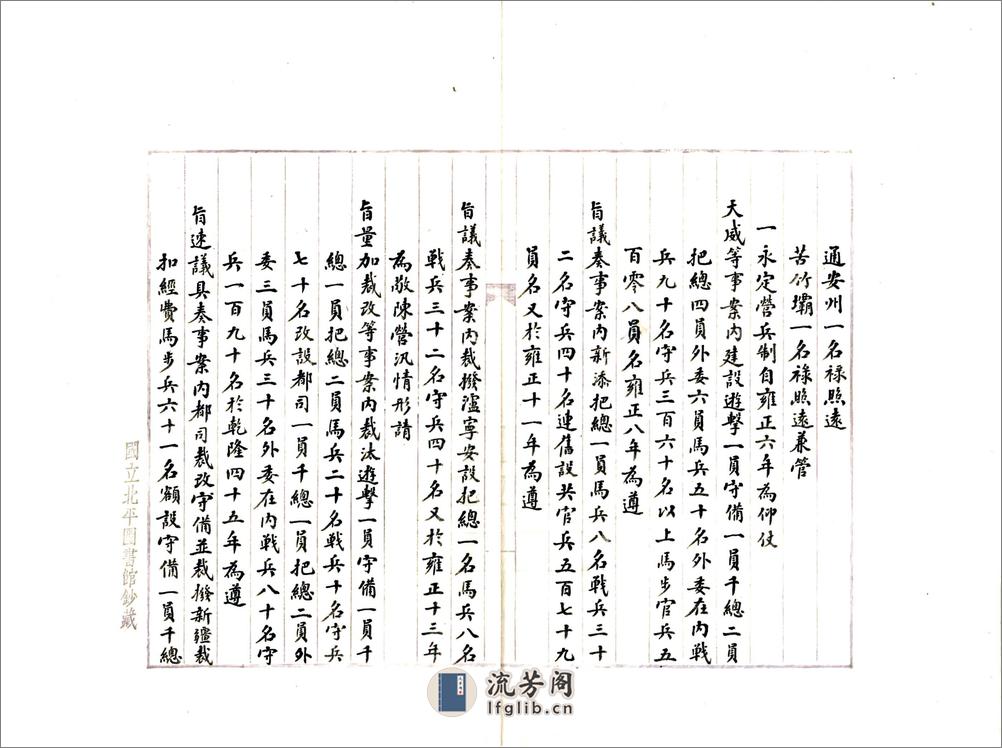 通安州一名禄照遠
苦竹壩一名禄照遠兼管
一永定營兵制自雍正六年為仰仗
天威等事案內建設遊擊一員守備一員千總二員
把總四員外委六員馬兵五十名外委在內戰
兵九十名守兵三百六十名以上馬步官兵五
百零八員名雍正八年為遵
旨議奏事案內新添把總一員馬兵八名戰兵三十
二名守兵四十名連舊設共官兵五百七十九
員名又於雍正十一年為遵
旨議奏事案內裁撥瀘寧安設把總一名馬兵八名
戰兵三十二名守兵四十名又於雍正十三年
為敬陳營汛情形請
旨量加裁改等事案內裁汰遊擊一員守備一員千
總一員把總二員馬兵二十名戰兵十名守兵
七十名改設都司一員千總一員把總二員外
委三員馬兵三十名外委在內戰兵八十名守
兵一百九十名於乾隆四十五年為遵
旨速議具奏事案內都司裁改守備並裁撥新疆裁
扣經費馬步兵六十一名額設守備一員千總
國立北平圖書館鈔藏
流芳阁
lfglib.cn